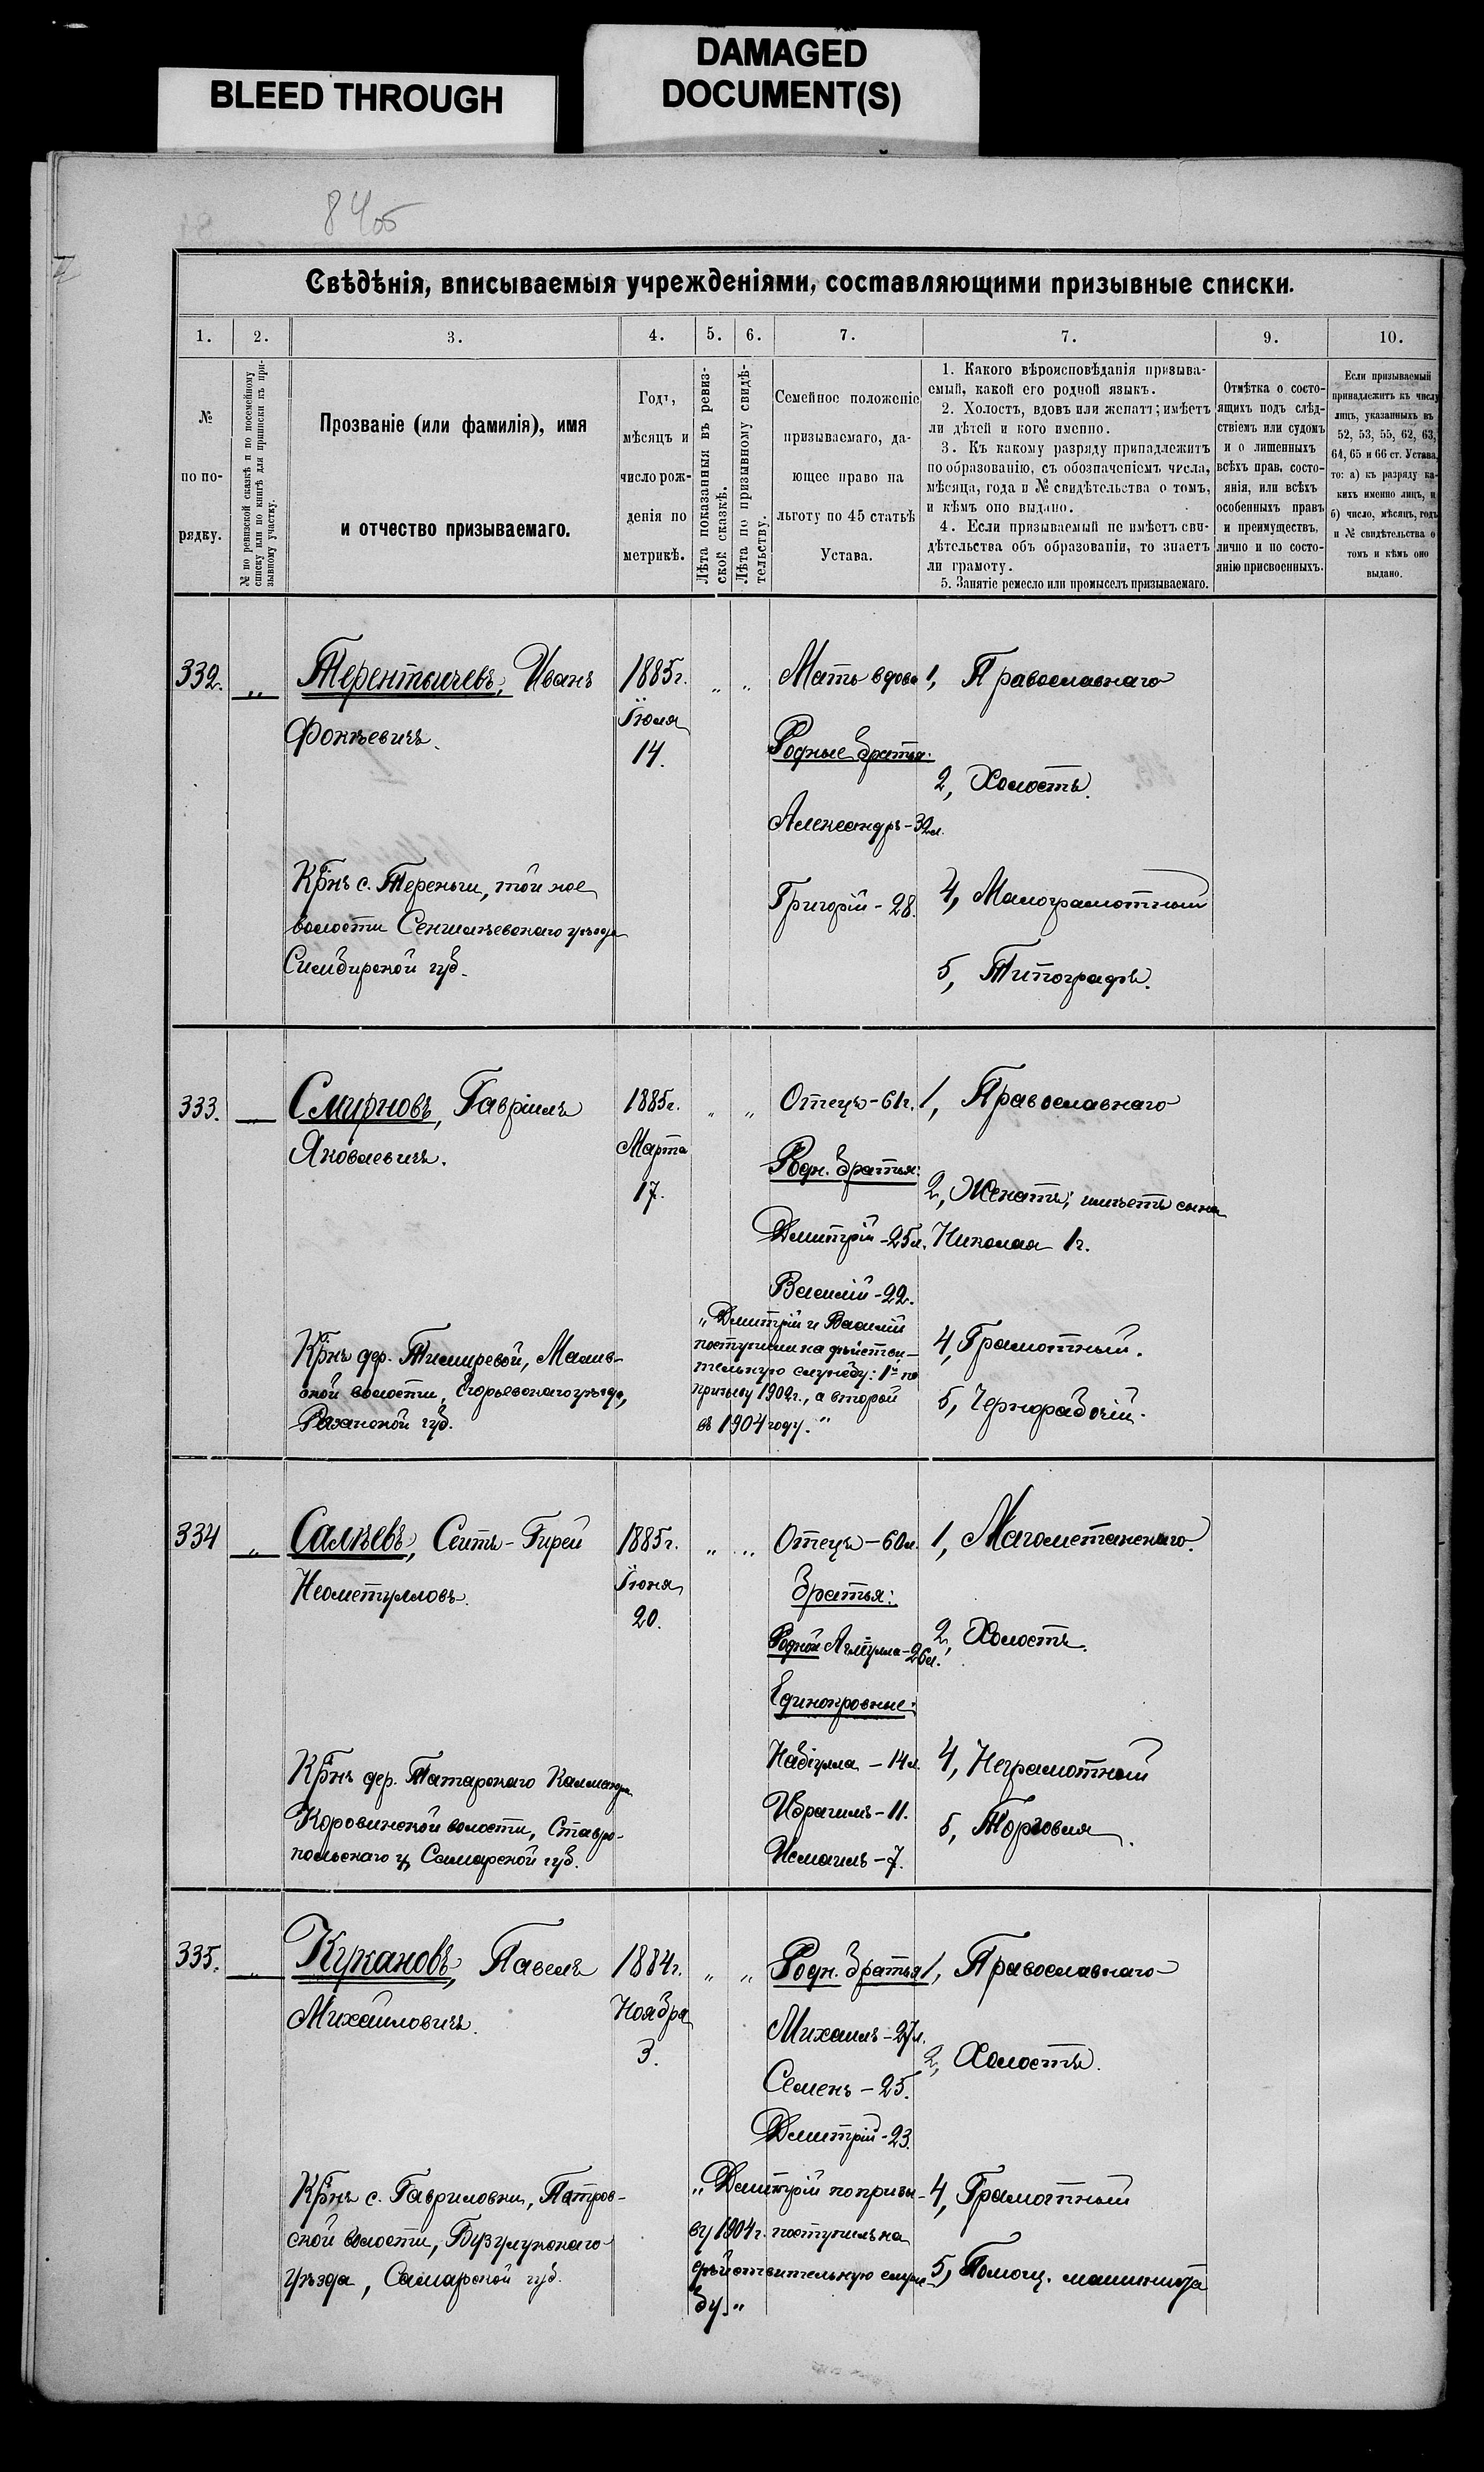 BLEED THROUGH
DAMAGED
DOCUMENT(S)
Свѣдѣнія, вписываемыя учрежденіями, составляющими призывные списки.
1. 2. 3. 4. 5. 6. 7. 7. 9. 10.
№
по по-
рядку.
№ по ревизской сказкѣ и по посемейному
списку или по книгѣ для приписки къ при-
зывному участку.
Прозваніе (или фамилія), имя
и отчество призываемаго.
Годъ,
мѣсяцъ и
число рож-
денія по
метрикѣ.
Лѣта показанныя въ ревиз-
ской сказкѣ.
Лѣта по призывному свидѣ-
тельству.
Семейное положеніе
призываемаго, да-
ющее право на
льготу по 45 статьѣ
Устава.
1. Какого вѣроисповѣданія призыва-
емый, какой его родной языкъ.
2. Холостъ, вдовъ или женатъ; имѣетъ
ли дѣтей и кого именно.
3. Къ какому разряду принадлежитъ
по образованію, съ обозначеніемъ числа,
мѣсяца, года и № свидѣтельства о томъ,
и кѣмъ оно выдано.
4. Если призываемый не имѣетъ сви-
дѣтельства объ образованіи, то знаетъ
ли грамоту.
5. Занятіе ремесло или промыселъ призываемаго.
Отмѣтка о состо-
ящихъ подъ слѣд-
ствіемъ или судомъ
и о лишенныхъ
всѣхъ прав. состо-
янія, или всѣхъ
особенныхъ правъ
и преимуществъ,
лично и по состо-
янію присвоенныхъ.
Если призываемый
принадлежитъ къ числу
лицъ, указанныхъ въ
52, 53, 55, 62, 63,
64, 65 и 66 ст. Устава,
то: а) къ разряду ка-
кихъ именно лицъ, и
б) число, мѣсяцъ, годъ
и № свидѣтельства о
томъ и кѣмъ оно
выдано.
332. „ Терентьичевъ, Иванъ
Фокѣевичъ.
Крнъ с. Тереньги, той же
волости Сенгилѣевскаго уѣзда
Симбирской губ.
1885г.
Іюля
14.
„ „
Мать вдова
Родные братья:
Александръ - 32л.
Григорій - 28.
1, Православнаго
2, Холостъ.
4, Малограмотный
5, Типографъ.
333. „ Смирновъ, Гавріилъ
Яковлевичъ.
Крнъ дер. Тимиревой, Малив-
ской волости, Егорьевскаго уѣзда,
Рязанской губ.
1885г.
Марта
17.
„ „
Отецъ - 61г.
Родн. братья:
Дмитрій - 25л.
Василій - 22.
„Дмитрій и Василій
поступили на дѣйстви-
тельную службу: 1й по
призыву 1902г., а второй
въ 1904 году.“
1, Православнаго
2, Женатъ; имѣетъ сына
Николая 1г.
4, Грамотный.
5, Чернорабочій.
334 „ Салѣевъ, Сеитъ-Гирей
Неометулловъ.
Крнъ дер. Татарскаго Калмаюра
Коровинской волости, Ставро-
польскаго у, Самарской губ.
1885г.
Іюня
20.
„ „
Отецъ - 60л.
Братья:
Родной - 26л.
Единокровные:
Набіулла - 14л.
Ибрагимъ - 11.
Исмагилъ - 7.
1, Магометанскаго.
2, Холостъ.
4, Неграмотный
5, Торговля.
335. „ Кукановъ, Павелъ
Михайловичъ.
Крнъ с. Гавриловки, Патров-
ской волости, Бузулукскаго
уѣзда, Самарской губ.
1884г.
Ноября
3.
„ „
Родн. братья
Михаилъ - 27л.
Семенъ - 25.
Дмитрій - 23.
„Дмитрій по призы-
ву 1904г. поступилъ на
дѣйствительную служ-
бу.“
1, Православнаго
2, Холостъ.
4, Грамотный
5, Помощ. машиниста